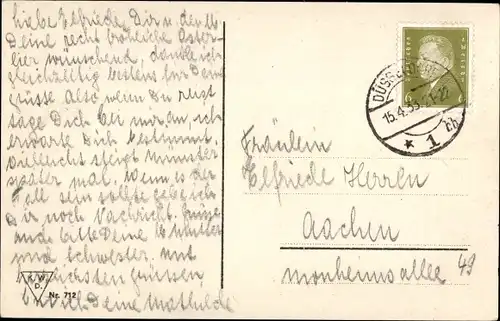 liebe Elfriede, Dir u. den lb
Deine recht fröhliche Oster-
feier wünschend, danke ich
gleichzeitig bestens für Deine
grüsse. Also wenn Du
sage Dich bei mir an, ich
erwarte Dich bestimmt.
Vielleicht steigt Münster
später mal. Wenn es der
Fall sein sollte gebe ich
Dir noch Nachricht.
bitte Deine lb Mutter
und Schwester. mit
herzlichsten grüssen
Deine Mathilde
K.W.
D.
Nr. 712
DÜSSELDORF
15.4.33
* 1 bb
Fräulein
Elfriede Herren
Aachen
Monheimsallee 49